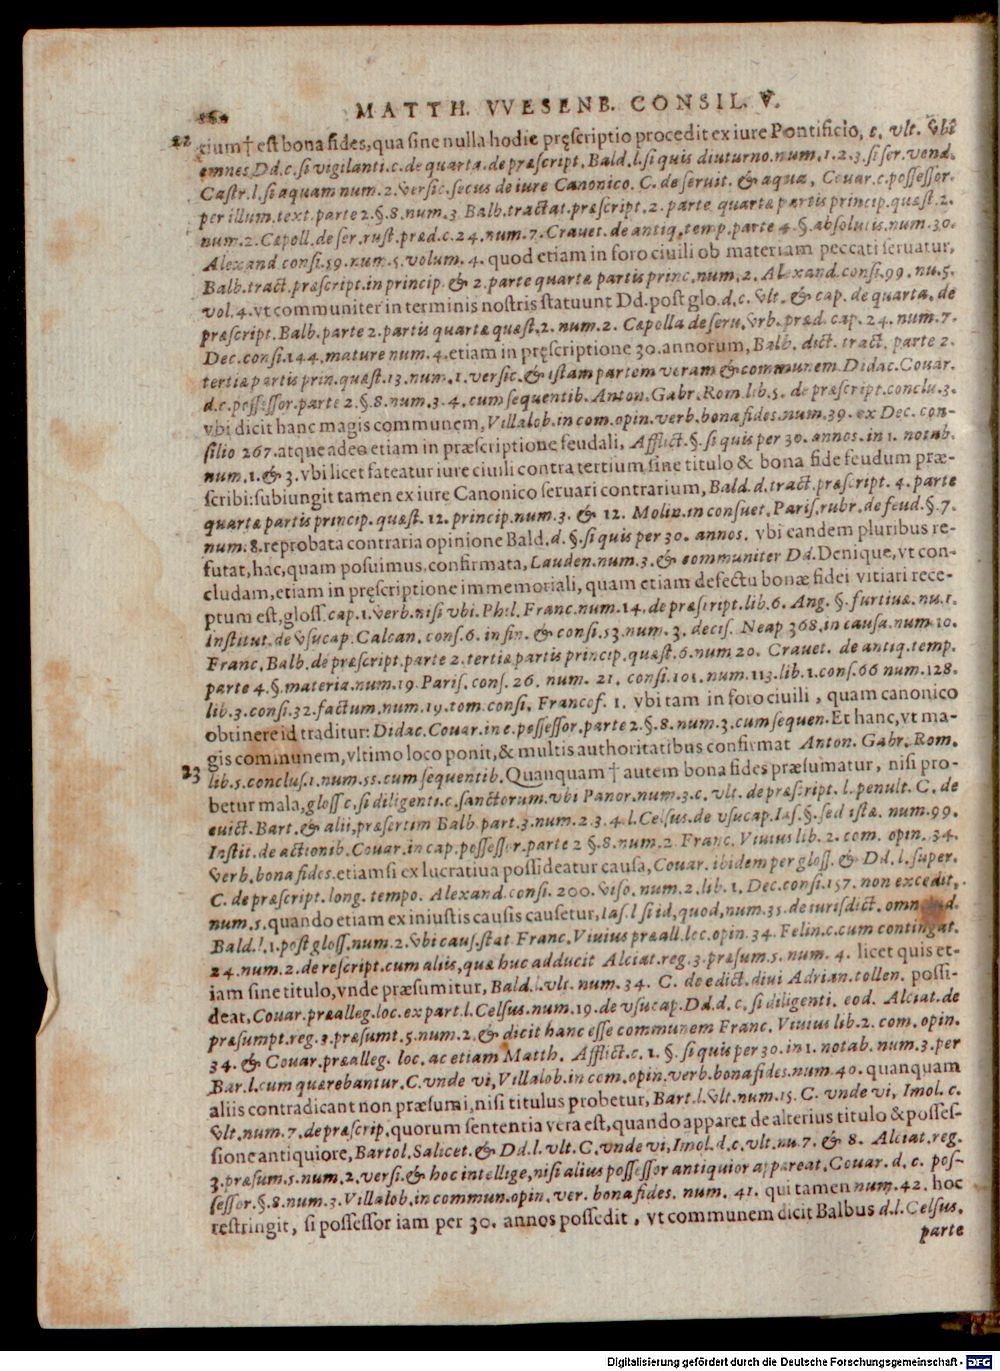 MATTH. VVESENB. CONSIL. V.
22 tium† est bona fides, qua sine nulla hodie pręscriptio procedit ex iure Pontificio, c. vlt. vbi
omnes Dd. c. si vigilanti. c. de quarta. de præscript. Bald. l. si quis diuturno. num. 1. 2. 3. si ser. vend.
Castr. l. si aquam num. 2. versic. secus de iure Canonico. C. de seruit. & aqua, Couar. c. possessor.
per illum. text. parte 2. §. 8. num. 3. Balb. tractat. præscript. 2. parte quartæ partis princip. quæst. 2.
num. 2. Cæpoll. de ser. rust. præd. c. 24. num. 7. Crauet. de antiq. temp. parte 4. §. absolutis. num. 30.
Alexand. consi. 59. num. 5. volum. 4. quod etiam in foro ciuili ob materiam peccati seruatur,
Balb. tract. præscript. in princip. & 2. parte quartæ partis princ. num. 2. Alexand. consi. 99. nu. 5.
vol. 4. vt communiter in terminis nostris statuunt Dd. post glo. d. c. vlt. & cap. de quarta. de
præscript. Balb. parte 2. partis quartæ quæst. 2. num. 2. Cæpolla de seru. vrb. præd. cap. 24. num. 7.
Dec. consi. 144. mature num. 4. etiam in pręscriptione 30. annorum, Balb. dict. tract. parte 2.
tertiæ partis prin. quæst. 13. num. 1. versic. & istam partem veram & communem Didac. Couar.
d. c. possessor. parte 2. §. 8. num. 3. 4. cum sequentib. Anton. Gabr. Rom. lib. 5. de præscript. conclu. 3.
vbi dicit hanc magis communem, Villalob. in com. opin. verb. bona fides. num. 39. ex Dec. con-
silio 267. atque adeo etiam in præscriptione feudali, Afflict. §. si quis per 30. annos. in 1. notab.
num. 1. & 3. vbi licet fateatur iure ciuili contra tertium sine titulo & bona fide feudum præ-
scribi: subiungit tamen ex iure Canonico seruari contrarium, Bald. d. tract. præscript. 4. parte
quartæ partis princip. quæst. 12. princip. num. 3. & 12. Molin. in consuet. Paris. rubr. de feud. §. 7.
num. 8. reprobata contraria opinione Bald. d. §. si quis per 30. annos. vbi eandem pluribus re-
futat, hac, quam posuimus, confirmata, Lauden. num. 3. & communiter Dd. Denique, vt con-
cludam, etiam in pręscriptione immemoriali, quam etiam defectu bonæ fidei vitiari rece-
ptum est, gloss. cap. 1. verb. nisi vbi. Phil. Franc. num. 14. de præscript. lib. 6. Ang. §. furtiuæ. nu. 1.
Institut. de vsucap. Calcan. cons. 6. in fin. & consi. 53. num. 3. decis. Neap 368. in causa. num. 10.
Franc. Balb. de præscript. parte 2. tertiæ partis princip. quæst. 6. num 20. Crauet. de antiq. temp.
parte 4. §. materia. num. 19. Paris. cons. 26. num. 21. consi. 101. num. 113. lib. 1. cons. 66 num. 128.
lib. 3. consi. 32. factum. num. 19. tom. consi. Francof. 1. vbi tam in foro ciuili, quam canonico
obtinere id traditur: Didac. Couar. in c. possessor. parte 2. §. 8. num. 3. cum sequen. Et hanc, vt ma-
gis communem, vltimo loco ponit, & multis authoritatibus confirmat Anton. Gabr. Rom.
23 lib. 5. conclus. 1. num. 55. cum sequentib. Quanquam † autem bona fides præsumatur, nisi pro-
betur mala, gloss. c. si diligenti. c. sanctorum. vbi Panor. num. 3. c. vlt. de præscript. l. penult. C. de
euict. Bart. & alii, præsertim Balb. part. 3. num. 2. 3. 4. l. Celsus. de vsucap. Ias. §. sed istæ. num. 99.
Instit. de actionib. Couar. in cap. possessor. parte 2 §. 8. num. 2. Franc. Viuius lib. 2. com. opin. 34.
verb. bona fides. etiamsi ex lucratiua possideatur causa, Couar. ibidem per gloss. & Dd. l. super.
C. de præscript. long. tempo. Alexand. consi. 200. viso. num. 2. lib. 1. Dec. consi. 157. non excedit.
num. 5. quando etiam ex iniustis causis causetur, Ias. l si id, quod, num. 35. de iurisdict. omn.
Bald. l. 1. post gloss. num. 2. vbi caus. stat Franc. Viuius præall. loc. opin. 34. Felin. c. cum contingat.
24. num. 2. de rescript. cum aliis, quæ huc adducit Alciat. reg. 3. præsum. 5. num. 4. licet quis et-
iam sine titulo, vnde præsumitur, Bald. l. vlt. num. 34. C. de edict. diui Adrian. tollen. possi-
deat, Couar. præalleg. loc. ex part. l. Celsus. num. 19. de vsucap. Dd. d. c. si diligenti. eod. Alciat. de
præsumpt. reg. 3. præsumt. 5. num. 2. & dicit hanc esse communem Franc. Viuius lib. 2. com. opin.
34. & Couar. præalleg. loc. ac etiam Matth. Afflict. c. 1. §. si quis per 30. in 1. notab. num. 3. per
Bar. l. cum quærebantur. C. vnde vi, Villalob. in com. opin. verb. bona fides. num. 40. quanquam
aliis contradicant non præsumi, nisi titulus probetur, Bart. l. vlt. num. 15. C. vnde vi, Imol. c.
vlt. num. 7. de præscrip. quorum sententia vera est, quando apparet de alterius titulo & posses-
sione antiquiore, Bartol. Salicet. & Dd. l. vlt. C. vnde vi, Imol. d. c. vlt. nu. 7. & 8. Alciat. reg.
3. præsum. 5. num. 2. versi. & hoc intellige, nisi alius possessor antiquior appareat. Couar. d. c. pos-
sessor. §. 8. num. 3. Villalob. in commun. opin. ver. bona fides. num. 41. qui tamen num. 42. hoc
restringit, si possessor iam per 30. annos possedit, vt communem dicit Balbus d. l. Celsus.
parte
Digitalisierung gefördert durch die Deutsche Forschungsgemeinschaft - DFG